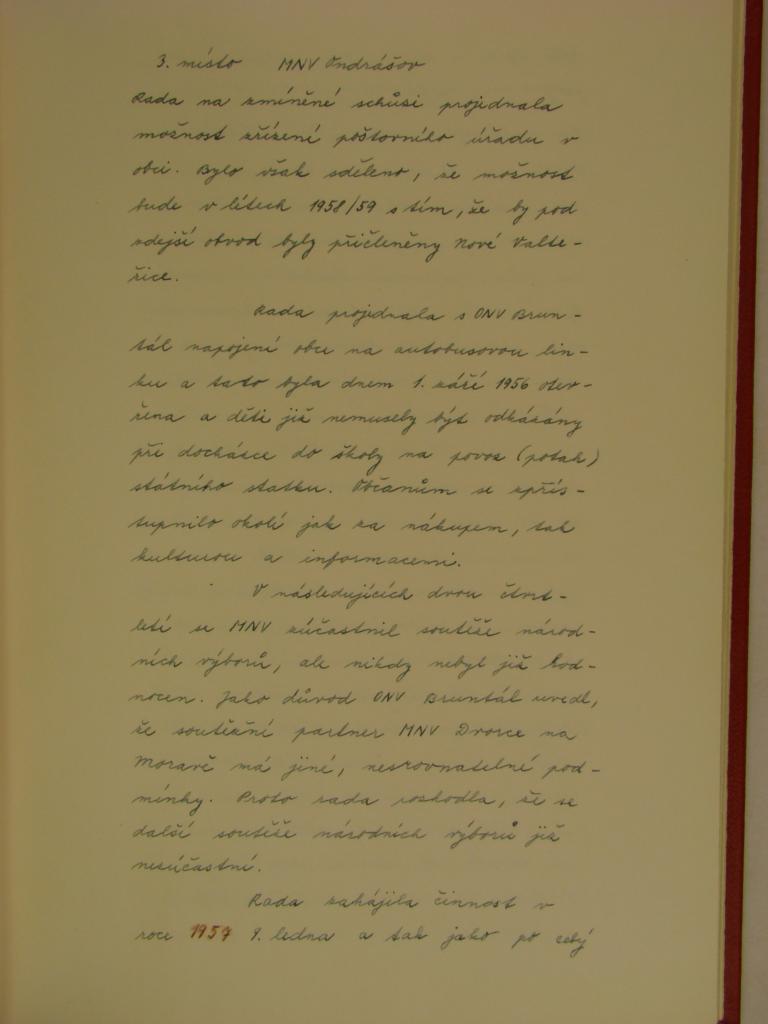 3. místo MNV Ondrášov
Rada na zmíněné schůzi projednala
možnost zřízení poštovního úřadu v
obci. Bylo však sděleno, že možnost
bude v létech 1958/59 s tím, že by pod
zdejší obvod byly přičleněny Nové Valte-
řice.
Rada projednala s ONV Brun-
tál napojení obce na autobusovou lin-
ku a tato byla dnem 1. září 1956 otev-
řena a děti již nemusely být odkázány
při docházce do školy na povoz (potah)
státního statku. Občanům se zpřís-
tupnilo okolí jak za nákupem, tak
kulturou a informacemi.
V následujících dvou čtvrt-
letí se MNV zúčastnil soutěže národ-
ních výborů, ale nikdy nebyl již hod-
nocen. Jako důvod ONV Bruntál uvedl,
že soutěžní partner MNV Dvorce na
Moravě má jiné, nesrovnatelné pod-
mínky. Proto rada rozhodla, že se
další soutěže národních výborů již
nezúčastní.
Rada zahájila činnost v
roce 1957 9. ledna a tak jako po celý